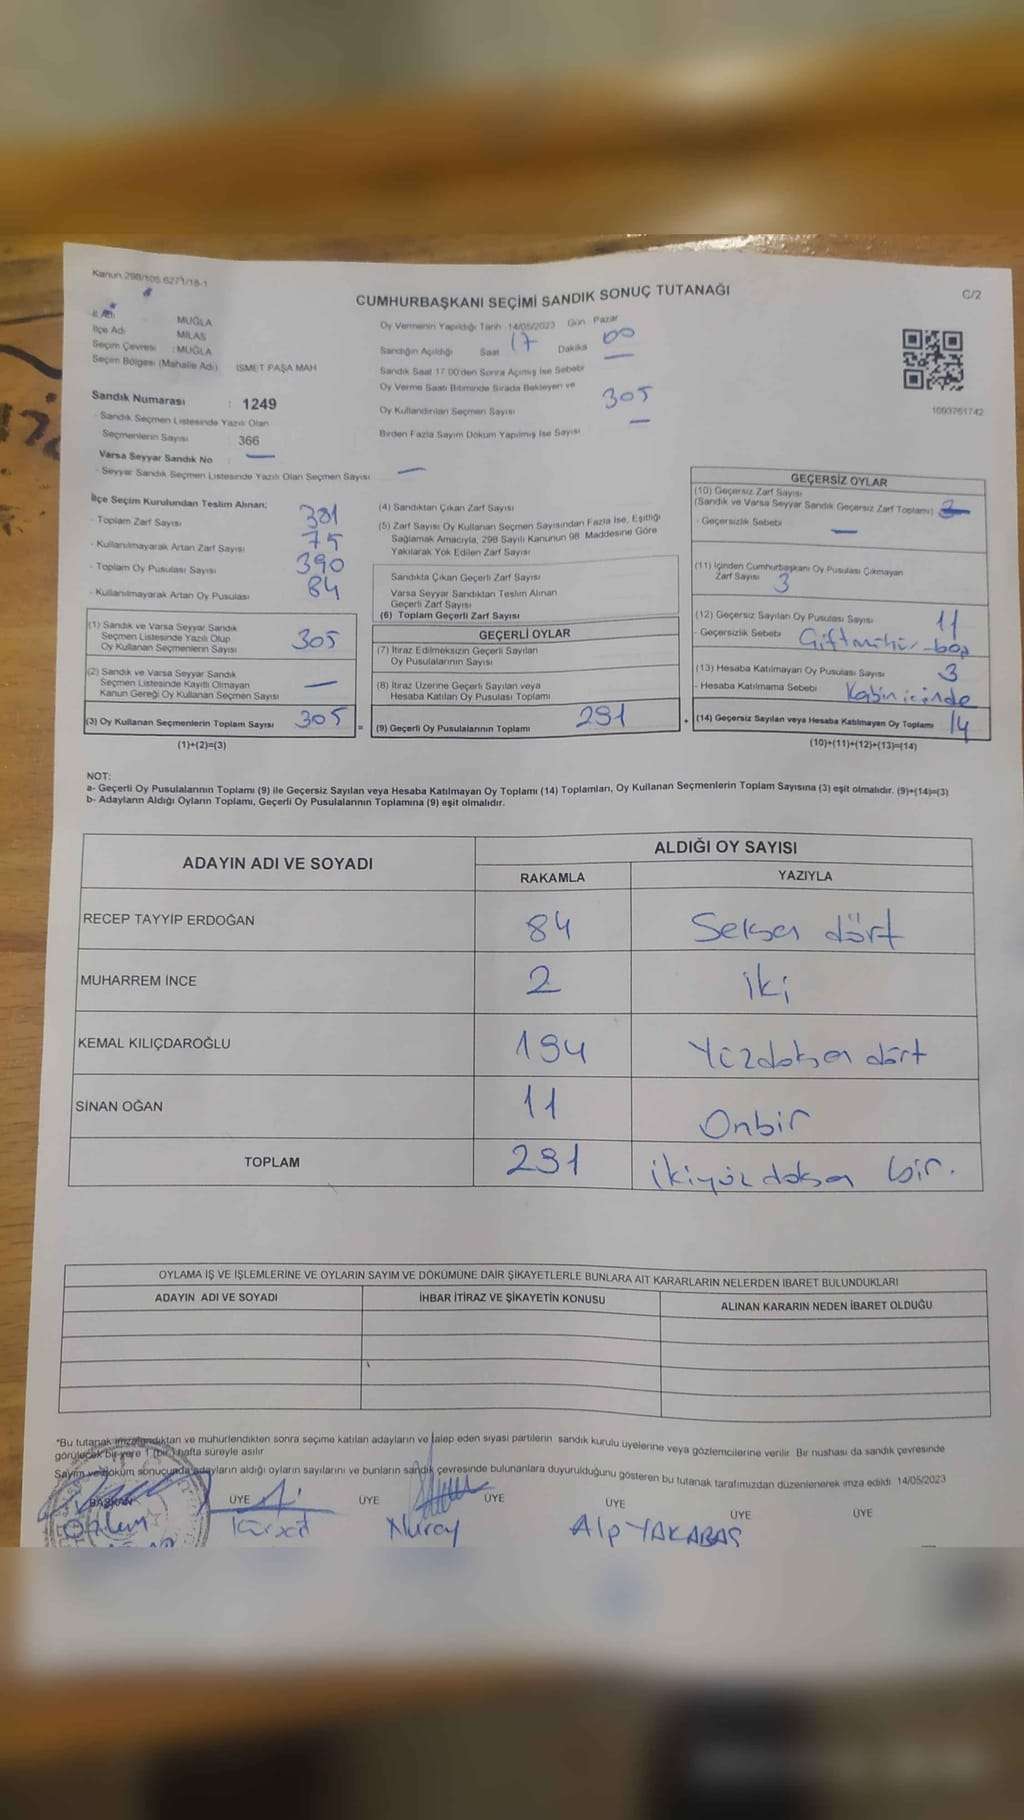 Kanun.298/105.627/1/18-1
CUMHURBAŞKANI SEÇİMİ SANDIK SONUÇ TUTANAĞI
C/2
İl Adı MUĞLA
İlçe Adı MİLAS
Seçim Çevresi : MUĞLA
Seçim Bölgesi (Mahalle Adı) İSMET PAŞA MAH
Sandık Numarası : 1249
- Sandık Seçmen Listesinde Yazılı Olan
Seçmenlerin Sayısı 366
Varsa Seyyar Sandık No : —
- Seyyar Sandık Seçmen Listesinde Yazılı Olan Seçmen Sayısı —
Oy Vermenin Yapıldığı Tarih 14/05/2023 Gün Pazar
Sandığın Açıldığı Saat 17 Dakika 00
Sandık Saat 17:00'den Sonra Açımış İse Sebebi —
Oy Verme Saati Bitiminde Sırada Bekleyen ve
Oy Kullandırılan Seçmen Sayısı 305
Birden Fazla Sayım Döküm Yapılmış İse Sayısı —
1093761742
İlçe Seçim Kurulundan Teslim Alınan;
- Toplam Zarf Sayısı 381
- Kullanılmayarak Artan Zarf Sayısı 75
- Toplam Oy Pusulası Sayısı 390
- Kullanılmayarak Artan Oy Pusulası 84
(1) Sandık ve Varsa Seyyar Sandık
Seçmen Listesinde Yazılı Olup
Oy Kullanan Seçmenlerin Sayısı 305
(2) Sandık ve Varsa Seyyar Sandık
Seçmen Listesinde Kayıtlı Olmayan
Kanun Gereği Oy Kullanan Seçmen Sayısı —
(3) Oy Kullanan Seçmenlerin Toplam Sayısı 305 =
(1)+(2)=(3)
(4) Sandıktan Çıkan Zarf Sayısı
(5) Zarf Sayısı Oy Kullanan Seçmen Sayısından Fazla İse, Eşitliği
Sağlamak Amacıyla, 298 Sayılı Kanunun 98. Maddesine Göre
Yakılarak Yok Edilen Zarf Sayısı
Sandıkta Çıkan Geçerli Zarf Sayısı
Varsa Seyyar Sandıktan Teslim Alınan
Geçerli Zarf Sayısı
(6) Toplam Geçerli Zarf Sayısı
GEÇERLİ OYLAR
(7) İtiraz Edilmeksizin Geçerli Sayılan
Oy Pusulalarının Sayısı
(8) İtiraz Üzerine Geçerli Sayılan veya
Hesaba Katılan Oy Pusulası Toplamı
(9) Geçerli Oy Pusulalarının Toplamı 291 +
GEÇERSİZ OYLAR
(10) Geçersiz Zarf Sayısı
(Sandık ve Varsa Seyyar Sandık Geçersiz Zarf Toplamı)
- Geçersizlik Sebebi —
(11) İçinden Cumhurbaşkanı Oy Pusulası Çıkmayan
Zarf Sayısı 3
(12) Geçersiz Sayılan Oy Pusulası Sayısı 11
- Geçersizlik Sebebi Çift mühür - boş
(13) Hesaba Katılmayan Oy Pusulası Sayısı 3
- Hesaba Katılmama Sebebi Kabin içinde
(14) Geçersiz Sayılan veya Hesaba Katılmayan Oy Toplamı 14
(10)+(11)+(12)+(13)=(14)
NOT:
a- Geçerli Oy Pusulalarının Toplamı (9) ile Geçersiz Sayılan veya Hesaba Katılmayan Oy Toplamı (14) Toplamları, Oy Kullanan Seçmenlerin Toplam Sayısına (3) eşit olmalıdır. (9)+(14)=(3)
b- Adayların Aldığı Oyların Toplamı, Geçerli Oy Pusulalarının Toplamına (9) eşit olmalıdır.
ADAYIN ADI VE SOYADI ALDIĞI OY SAYISI
RAKAMLA YAZIYLA
RECEP TAYYİP ERDOĞAN 84 Seksen dört
MUHARREM İNCE 2 iki
KEMAL KILIÇDAROĞLU 194 Yüzdoksen dört
SİNAN OĞAN 11 Onbir
TOPLAM 291 ikiyüz doksan bir.
OYLAMA İŞ VE İŞLEMLERİNE VE OYLARIN SAYIM VE DÖKÜMÜNE DAİR ŞİKAYETLERLE BUNLARA AİT KARARLARIN NELERDEN İBARET BULUNDUKLARI
ADAYIN ADI VE SOYADI İHBAR İTİRAZ VE ŞİKAYETİN KONUSU ALINAN KARARIN NEDEN İBARET OLDUĞU
*Bu tutanak imzalandıktan ve mühürlendikten sonra seçime katılan adayların ve talep eden siyasi partilerin sandık kurulu üyelerine veya gözlemcilerine verilir. Bir nüshası da sandık çevresinde
görülecek bir yere 1 (bir) hafta süreyle asılır.
Sayım ve döküm sonucunda adayların aldığı oyların sayılarını ve bunların sandık çevresinde bulunanlara duyurulduğunu gösteren bu tutanak tarafımızdan düzenlenerek imza edildi. 14/05/2023
BAŞKAN ÜYE ÜYE ÜYE ÜYE ÜYE ÜYE
Özlem Kürşat Nuray Alp YAKABAŞ